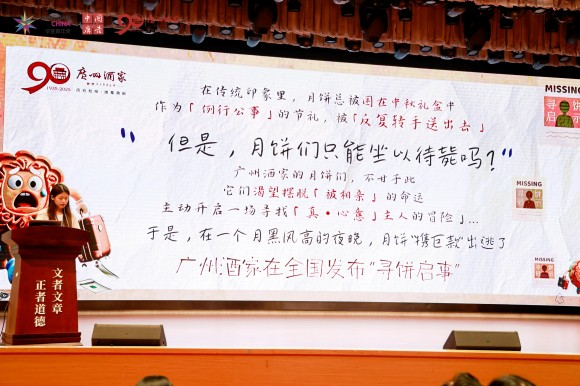 CHINA
中国
90
广州酒家
1935-2025
在传统印象里，月饼总被困在中秋礼盒中
作为「例行公事」的节礼，被「反复转手送出去」
“但是，月饼们只能坐以待毙吗？”
广州酒家的月饼们，不甘于此
它们渴望摆脱「被和亲」的命运
主动开启一场寻找「真·心意」主人的冒险」...
于是，在一个月黑风高的夜晚，月饼“携巨款”出逃了
广州酒家在全国发布“寻饼启事”
MISSING
寻饼
启示
MISSING
MISSING
文者文章
正者道德